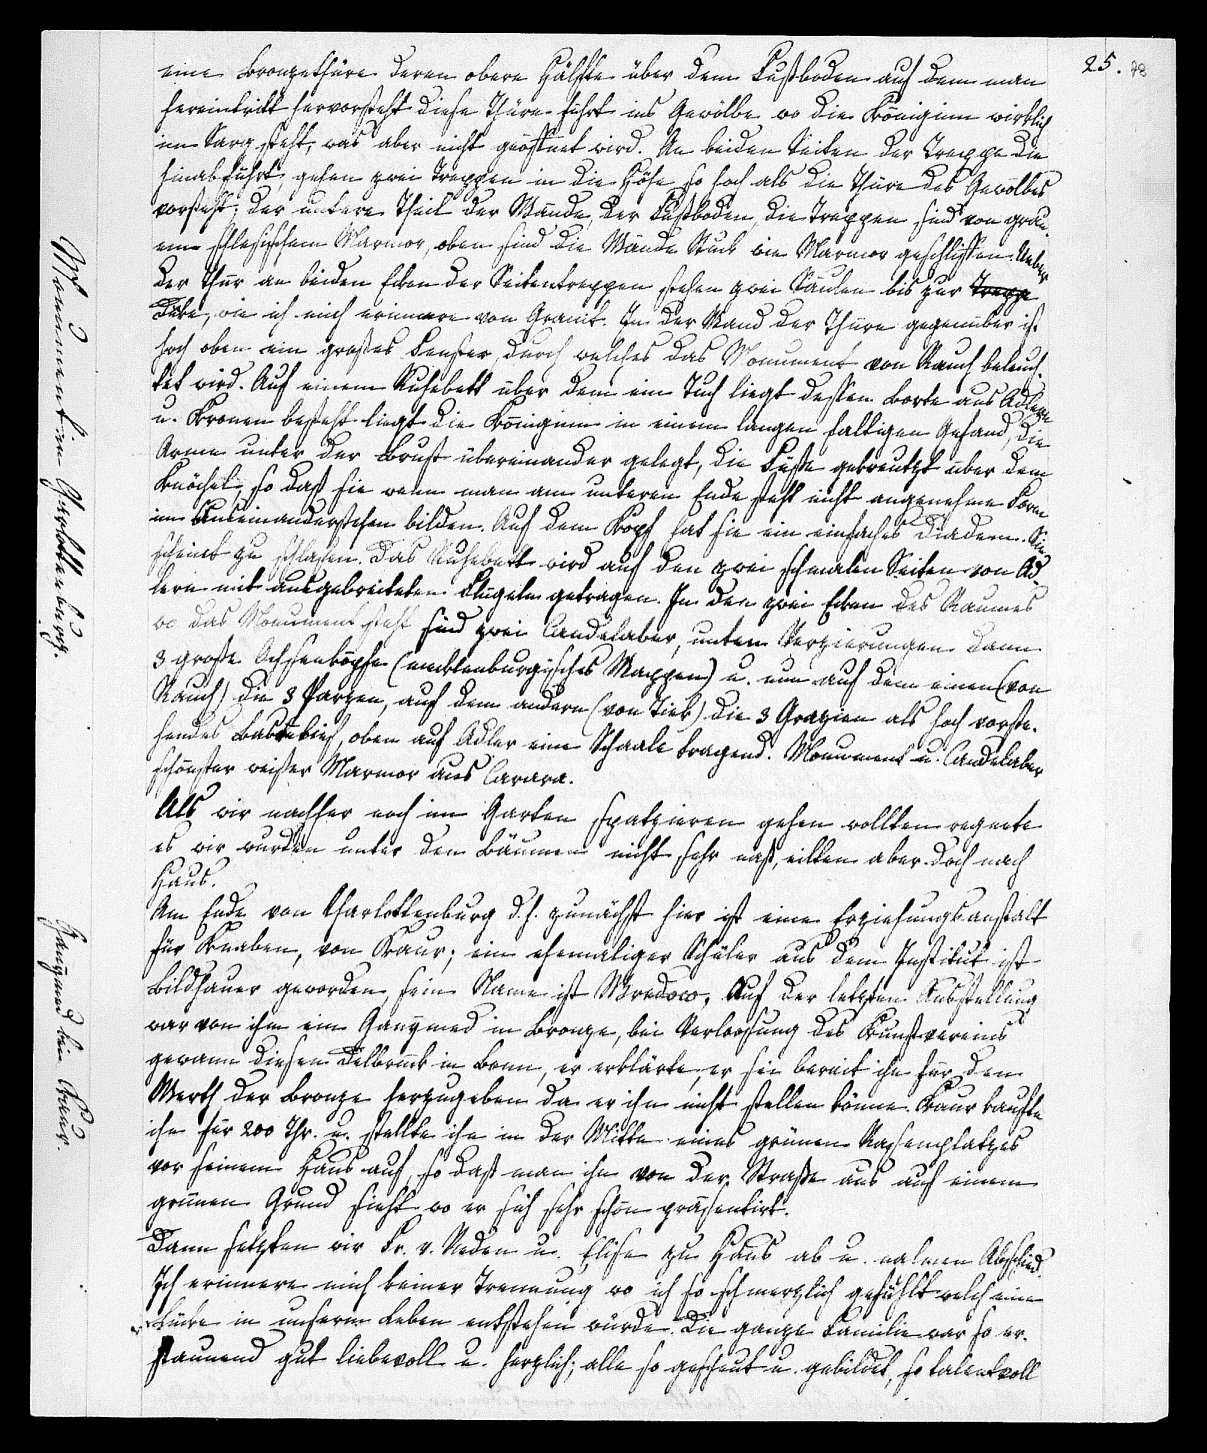 25.
78
eine Bronzethüre deren obere Hälfte über dem Fußboden auf dem man
hereintritt hervorsteht diese Thüre führt ins Gewölbe wo die Königinn wirklich
im Sarg steht, was aber nicht geöffnet wird. An beiden Seiten der Treppe die
hinabführt, gehen zwei Treppen in die Höhe so hoch als die Thüre des Gewölbes
vorsteht; der untere Theil der Wände, der Fußboden die Treppen sind von grau
em schlesischem Marmor, oben sind die Wände Stuck wie Marmor geschliffen. Ueber
der Thür an beiden Ecken der Seitentreppen stehen zwei Säulen bis zur Treppe
Decke, wie ich mich erinnere von Granit. In der Wand der Thüre gegenüber ist
hoch oben ein großes Fenster, durch welches das Monument von Rauch beleuch-
tet wird. Auf einem Ruhebett über dem ein Tuch liegt dessen Borte aus Adlern
u. Kronen besteht liegt die Königinn in einem langen faltigen Gewand, die
Arme unter der Brust übereinander gelegt, die Füße gekreutzt über dem
Knöchel, so daß sie wenn man am unteren Ende steht nicht angenehme Form
im Auseinanderstehen bilden. Auf dem Kopf hat sie ein einfaches Diadem. Sie
scheint zu schlafen. Das Ruhebett wird auf den zwei schmalen Seiten von Ad-
lern mit ausgebreiteten Flügeln getragen. In den zwei Ecken des Raumes
wo das Monument steht sind zwei Candelaber, unten Verzierungen dann
3 große Ochsenköpfe (mecklenburgisches Wappen) u. nun auf dem einen (von
Rauch) die 3 Parzen, auf dem andern (von Tiek) die 3 Grazien als hoch vorste-
hendes Basrelief, oben auf Adler eine Schaale tragend. Monument u. Candelaber
schönster weißer Marmor aus Carara.
Als wir nachher noch im Garten spatzieren gehen wollten regnete
es wir wurden unter den Bäumen nicht sehr naß, eilten aber doch nach
Haus.
Am Ende von Charlottenburg d. h. zunächst hier ist eine Erziehungsanstalt
für Knaben, von Kaur; ein ehemaliger Schüler aus dem Institut ist
Bildhauer geworden, sein Name ist Wredow. Auf der letzten Ausstellung
war von ihm ein Ganÿmed in Bronze, bei Verloosung des Kunstvereins
gewann diesen Delbrück in Bonn, er erklärte, er sei bereit ihn für den
Werth der Bronze herzugeben da er ihn nicht stellen könne. Kaur kaufte
ihn für 200 Thr. u. stellte ihn in der Mitte eines grünen Rasenplatzes
vor seinem Haus auf, so daß man ihn von der Straße aus auf einem
grünen Grund sieht wo er sich sehr schön präsentirt.
Dann setzten wir Fr. v. Reden u. Elise zu Haus ab u. nahmen Abschied.
Ich erinnere mich keiner Trennung wo ich so schmerzlich gefühlt welch eine
Lücke in unserm Leben entstehen würde. Die ganze Familie war so er-
staunend gut liebevoll u. herzlich; alle so gescheut u. gebildet, so talentvoll
Monument im Charlottenburg.
Ganÿmed bei Kaur.